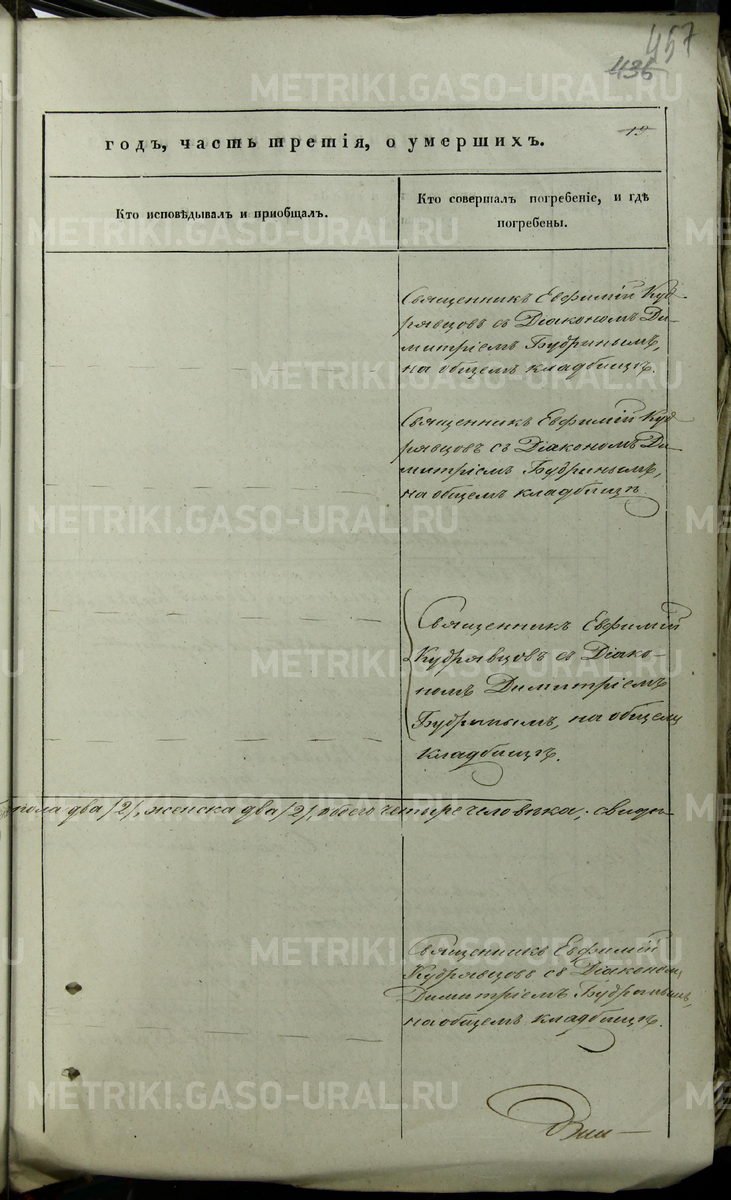 457
436
годъ, часть третія, о умершихъ.
19
Кто исповѣдывалъ и приобщалъ.
Кто совершалъ погребеніе, и гдѣ
погребены.
Священникъ Евфимій Куд-
рявцовъ съ Діакономъ Ди-
митріемъ Будринымъ,
на общемъ кладбищѣ.
Священникъ Евфимій Куд
рявцовъ съ Діакономъ Ди-
митріемъ Будринымъ,
на общемъ кладбищѣ.
Священникъ Евфимій
Кудрявцовъ съ Діако-
номъ Димитріемъ
Будринымъ, на общемъ
кладбищѣ.
пола два /2/, женска два /2/, обоего четыре человѣка; свидѣ-
Священникъ Евфимій
Кудрявцовъ съ Діакономъ
Димитріемъ Будринымъ,
на общемъ кладбищѣ.
METRIKI.GASO-URAL.RU